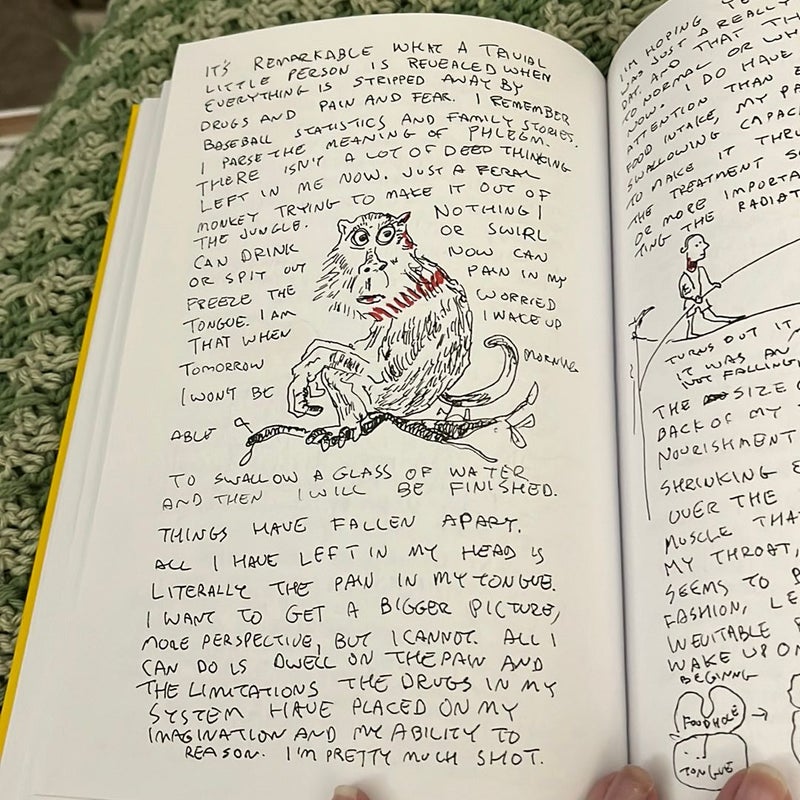 IT'S REMARKABLE WHAT A TRIVIAL
LITTLE PERSON IS REVEALED WHEN
EVERYTHING IS STRIPPED AWAY BY
DRUGS AND PAIN AND FEAR. I REMEMBER
BASEBALL STATISTICS AND FAMILY STORIES.
I PARSE THE MEANING OF PHLEGM.
THERE ISN'T A LOT OF DEEP THINKING
LEFT IN ME NOW. JUST A FERAL
MONKEY TRYING TO MAKE IT OUT OF
THE JUNGLE. NOTHING I
CAN DRINK OR SWIRL
OR SPIT OUT NOW CAN
FREEZE THE PAIN IN MY
TONGUE. I AM WORRIED
THAT WHEN I WAKE UP
TOMORROW MORNING
I WON'T BE
ABLE
TO SWALLOW A GLASS OF WATER
AND THEN I WILL BE FINISHED.
THINGS HAVE FALLEN APART.
ALL I HAVE LEFT IN MY HEAD IS
LITERALLY THE PAIN IN MY TONGUE.
I WANT TO GET A BIGGER PICTURE,
MORE PERSPECTIVE, BUT I CANNOT. ALL I
CAN DO IS DWELL ON THE PAIN AND
THE LIMITATIONS THE DRUGS IN MY
SYSTEM HAVE PLACED ON MY
IMAGINATION AND MY ABILITY TO
REASON. I'M PRETTY MUCH SHOT.
I'M HOPING
WAS JUST A REALLY
DAY. AND THAT
TO NORMAL OR
NOW. I DO HAVE
ATTENTION THAN
FOOD INTAKE, MY
SWALLOWING
TO MAKE IT
THE TREATMENT
OR MORE
TING THE
TURNS OUT IT
IT WAS AN
NOT FALLING
THE SIZE
BACK OF MY
NOURISHMENT
SHRINKING
OVER THE
MUSCLE
MY THROAT,
SEEMS TO
FASHION,
INEVITABLE
WAKE UP ON
BEGINNING
FOOD HOLE
TONGUE